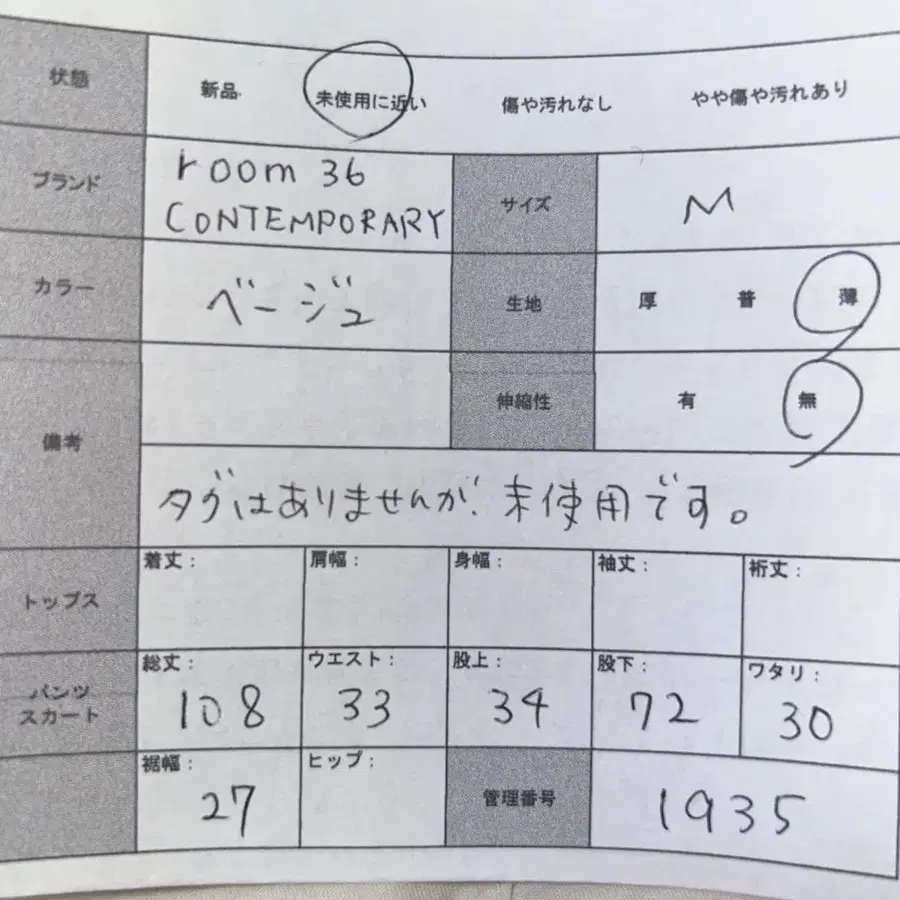 状態 新品 未使用に近い 傷や汚れなし やや傷や汚れあり
ブランド room 36 CONTEMPORARY サイズ M
カラー ベージュ 生地 厚 普 薄
伸縮性 有 無
備考 タグはありませんが、未使用です。
トップス 着丈: 肩幅: 身幅: 袖丈: 裄丈:
パンツ スカート 総丈: 108 ウエスト: 33 股上: 34 股下: 72 ワタリ: 30
裾幅: 27 ヒップ: 管理番号 1935